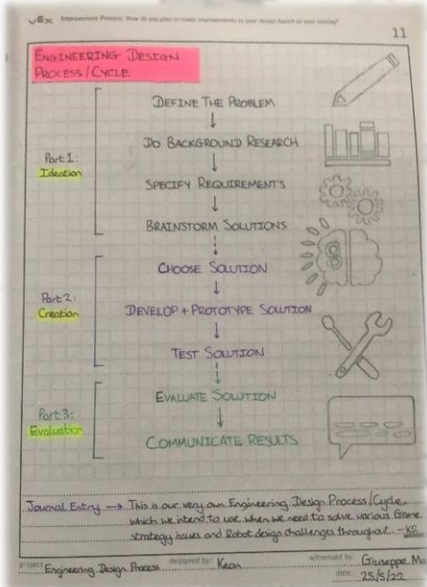 VEX Improvement Process: How do you plan to make improvements to your design based on your testing?
11
ENGINEERING DESIGN
PROCESS/CYCLE
Part 1:
Ideation
DEFINE THE PROBLEM
DO BACKGROUND RESEARCH
SPECIFY REQUIREMENTS
BRAINSTORM SOLUTIONS
Part 2:
Creation
CHOOSE SOLUTION
DEVELOP + PROTOTYPE SOLUTION
TEST SOLUTION
Part 3:
Evaluation
EVALUATE SOLUTION
COMMUNICATE RESULTS
Journal Entry → This is our very own Engineering Design Process/Cycle,
which we intend to use when we need to solve various Game
strategy issues and Robot design challenges throughout. -KD
project: Engineering Design Process designed by: Keon witnessed by: Giuseppe Ma
date: 25/5/22